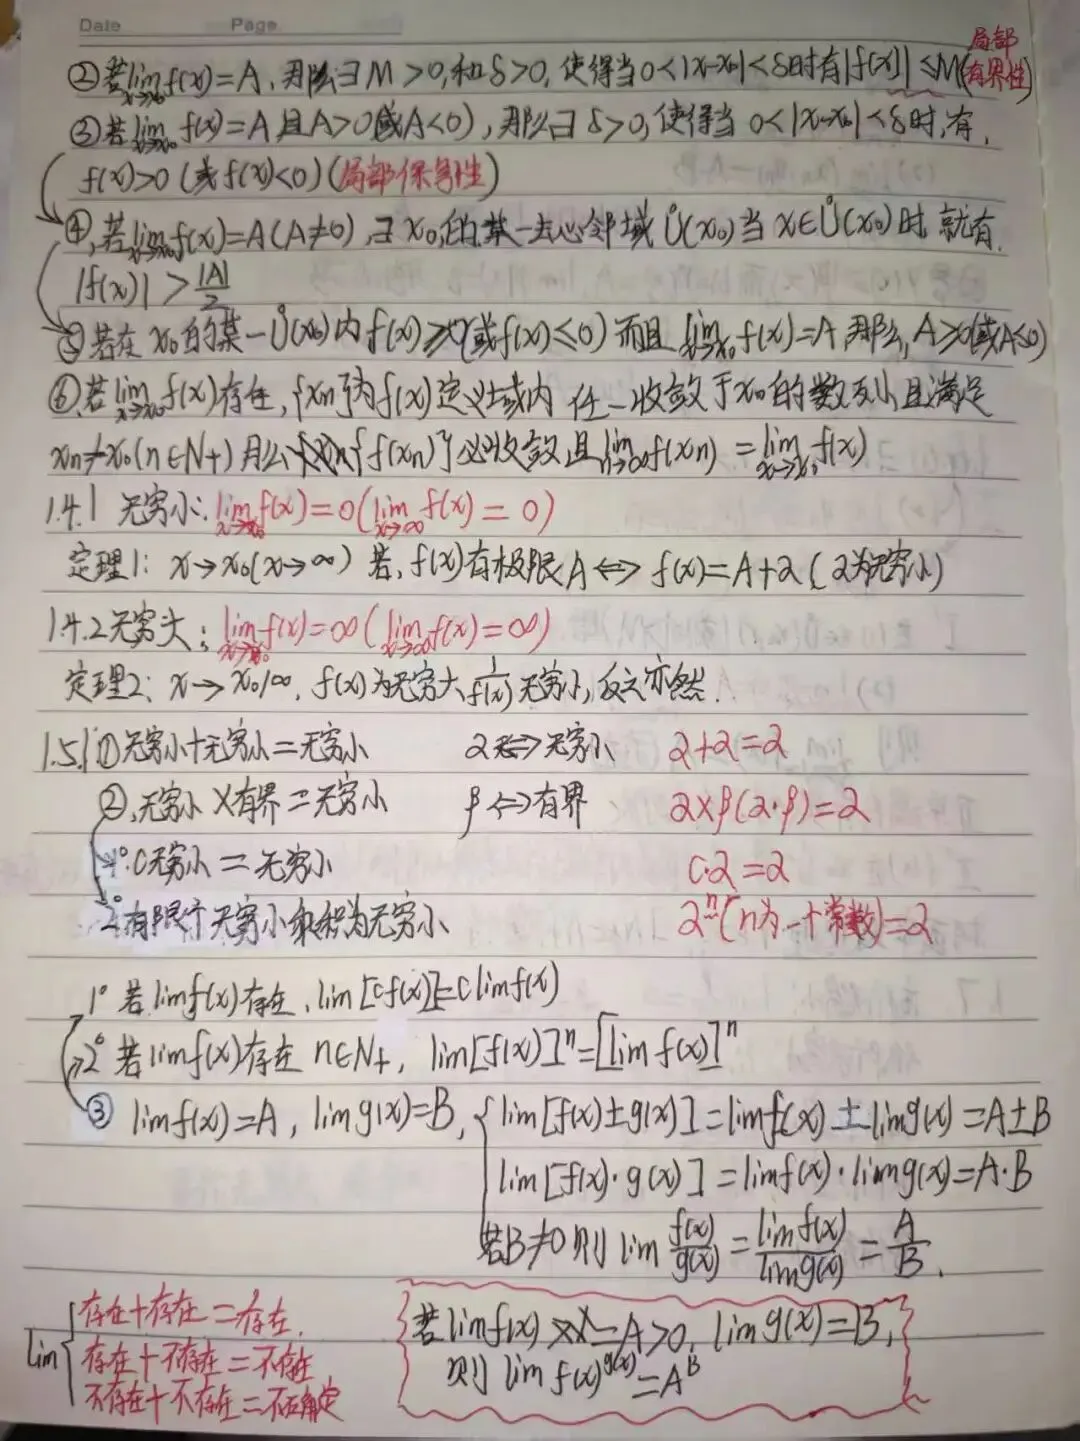 Date Page
②若lim x→x₀ f(x)=A,那么∃M>0,和δ>0,使得当0<|x-x₀|<δ时有|f(x)|≤M(局部有界性)
③若lim x→x₀ f(x)=A且A>0(或A<0),那么∃δ>0,使得当0<|x-x₀|<δ时,有,
f(x)>0(或f(x)<0)(局部保号性)
④,若lim x→x₀ f(x)=A(A≠0),∃x₀的某一去心邻域Ů(x₀)当x∈Ů(x₀)时就有
|f(x)|>|A|/2
⑤若在x₀的某一Ů(x₀)内f(x)≥0(或f(x)≤0)而且lim x→x₀ f(x)=A那么,A≥0(或A≤0)
⑥,若lim x→x₀ f(x)存在,{xn}为f(x)定义域内任一收敛于x₀的数列且满足
xn≠x₀(n∈N+)那么{f(xn)}必收敛且lim n→∞ f(xn)=lim x→x₀ f(x)
1.4.1 无穷小:lim x→x₀ f(x)=0(lim x→∞ f(x)=0)
定理1:x→x₀(x→∞)若,f(x)有极限A⇔f(x)=A+α(α为无穷小)
1.4.2无穷大:lim x→x₀ f(x)=∞(lim x→∞ f(x)=∞)
定理2:x→x₀/∞,f(x)为无穷大,1/f(x)无穷小,反之亦然.
1.5.1①无穷小+无穷小=无穷小 α⇔无穷小 α+α=α
②,无穷小×有界=无穷小 β⇔有界 α×β(α·β)=α
1°.C无穷小=无穷小 C·α=α
2°有限个无穷小乘积为无穷小 αⁿ(n为一个常数)=α
1° 若limf(x)存在,lim[cf(x)]=Climf(x)
2° 若limf(x)存在n∈N+,lim[f(x)]ⁿ=[limf(x)]ⁿ
③ limf(x)=A,limg(x)=B,{lim[f(x)±g(x)]=limf(x)±limg(x)=A±B
lim[f(x)·g(x)]=limf(x)·limg(x)=A·B
若B≠0则lim f(x)/g(x)=limf(x)/limg(x)=A/B.
lim{存在+存在=存在.
存在+不存在=不存在
不存在+不存在=不确定
若limf(x)=A>0,limg(x)=B,
则limf(x)^g(x)=A^B